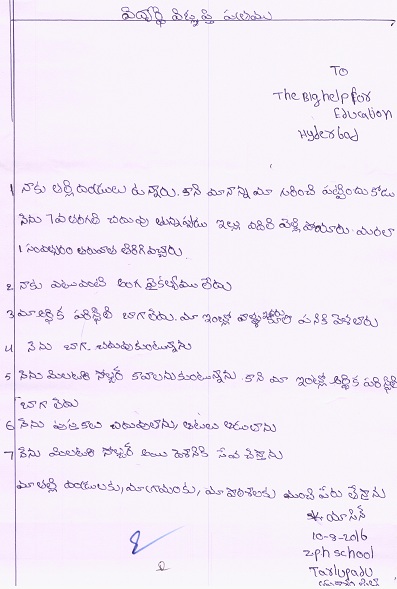 విద్యార్థి విజ్ఞప్తి పత్రము
TO
The Bighelp for
Education
Hyderbad
1 నాకు తల్లి దండ్రులు ఉన్నారు. కాని మా నాన్న మా గురించి పట్టించుకోడు
నేను 7వ తరగతి చదువు తున్నప్పుడు ఇల్లు వదిలి వెళ్లి పోయారు. మరలా
1 సంవత్సరం తరువాత తిరిగి వచ్చారు.
2 నాకు ఎటువంటి అంగ వైకల్యము లేదు
3 మా ఆర్థిక పరిస్థితి బాగలేదు. మా ఇంట్లో వాళ్ళు కూలి పనికి వెళతారు
4 నేను బాగ చదువుకుంటున్నాను
5 నేను మిలటరి సోల్జర్ కావాలనుకుంటున్నాను. కాని మా ఇంట్లో ఆర్థిక పరిస్థితి
బాగ లేదు
6 నేను పుస్తకాలు చదువుతాను, ఆటలు ఆడుతాను
7 నేను మిలటరి సోల్జర్ అయి దేశానికి సేవ చేస్తాను
మా తల్లి దండ్రులకు, మా గ్రామంకు, మా పాఠశాలకు మంచి పేరు తెస్తాను
యాసిన్
10-9-2016
zph school
Tarlupadu